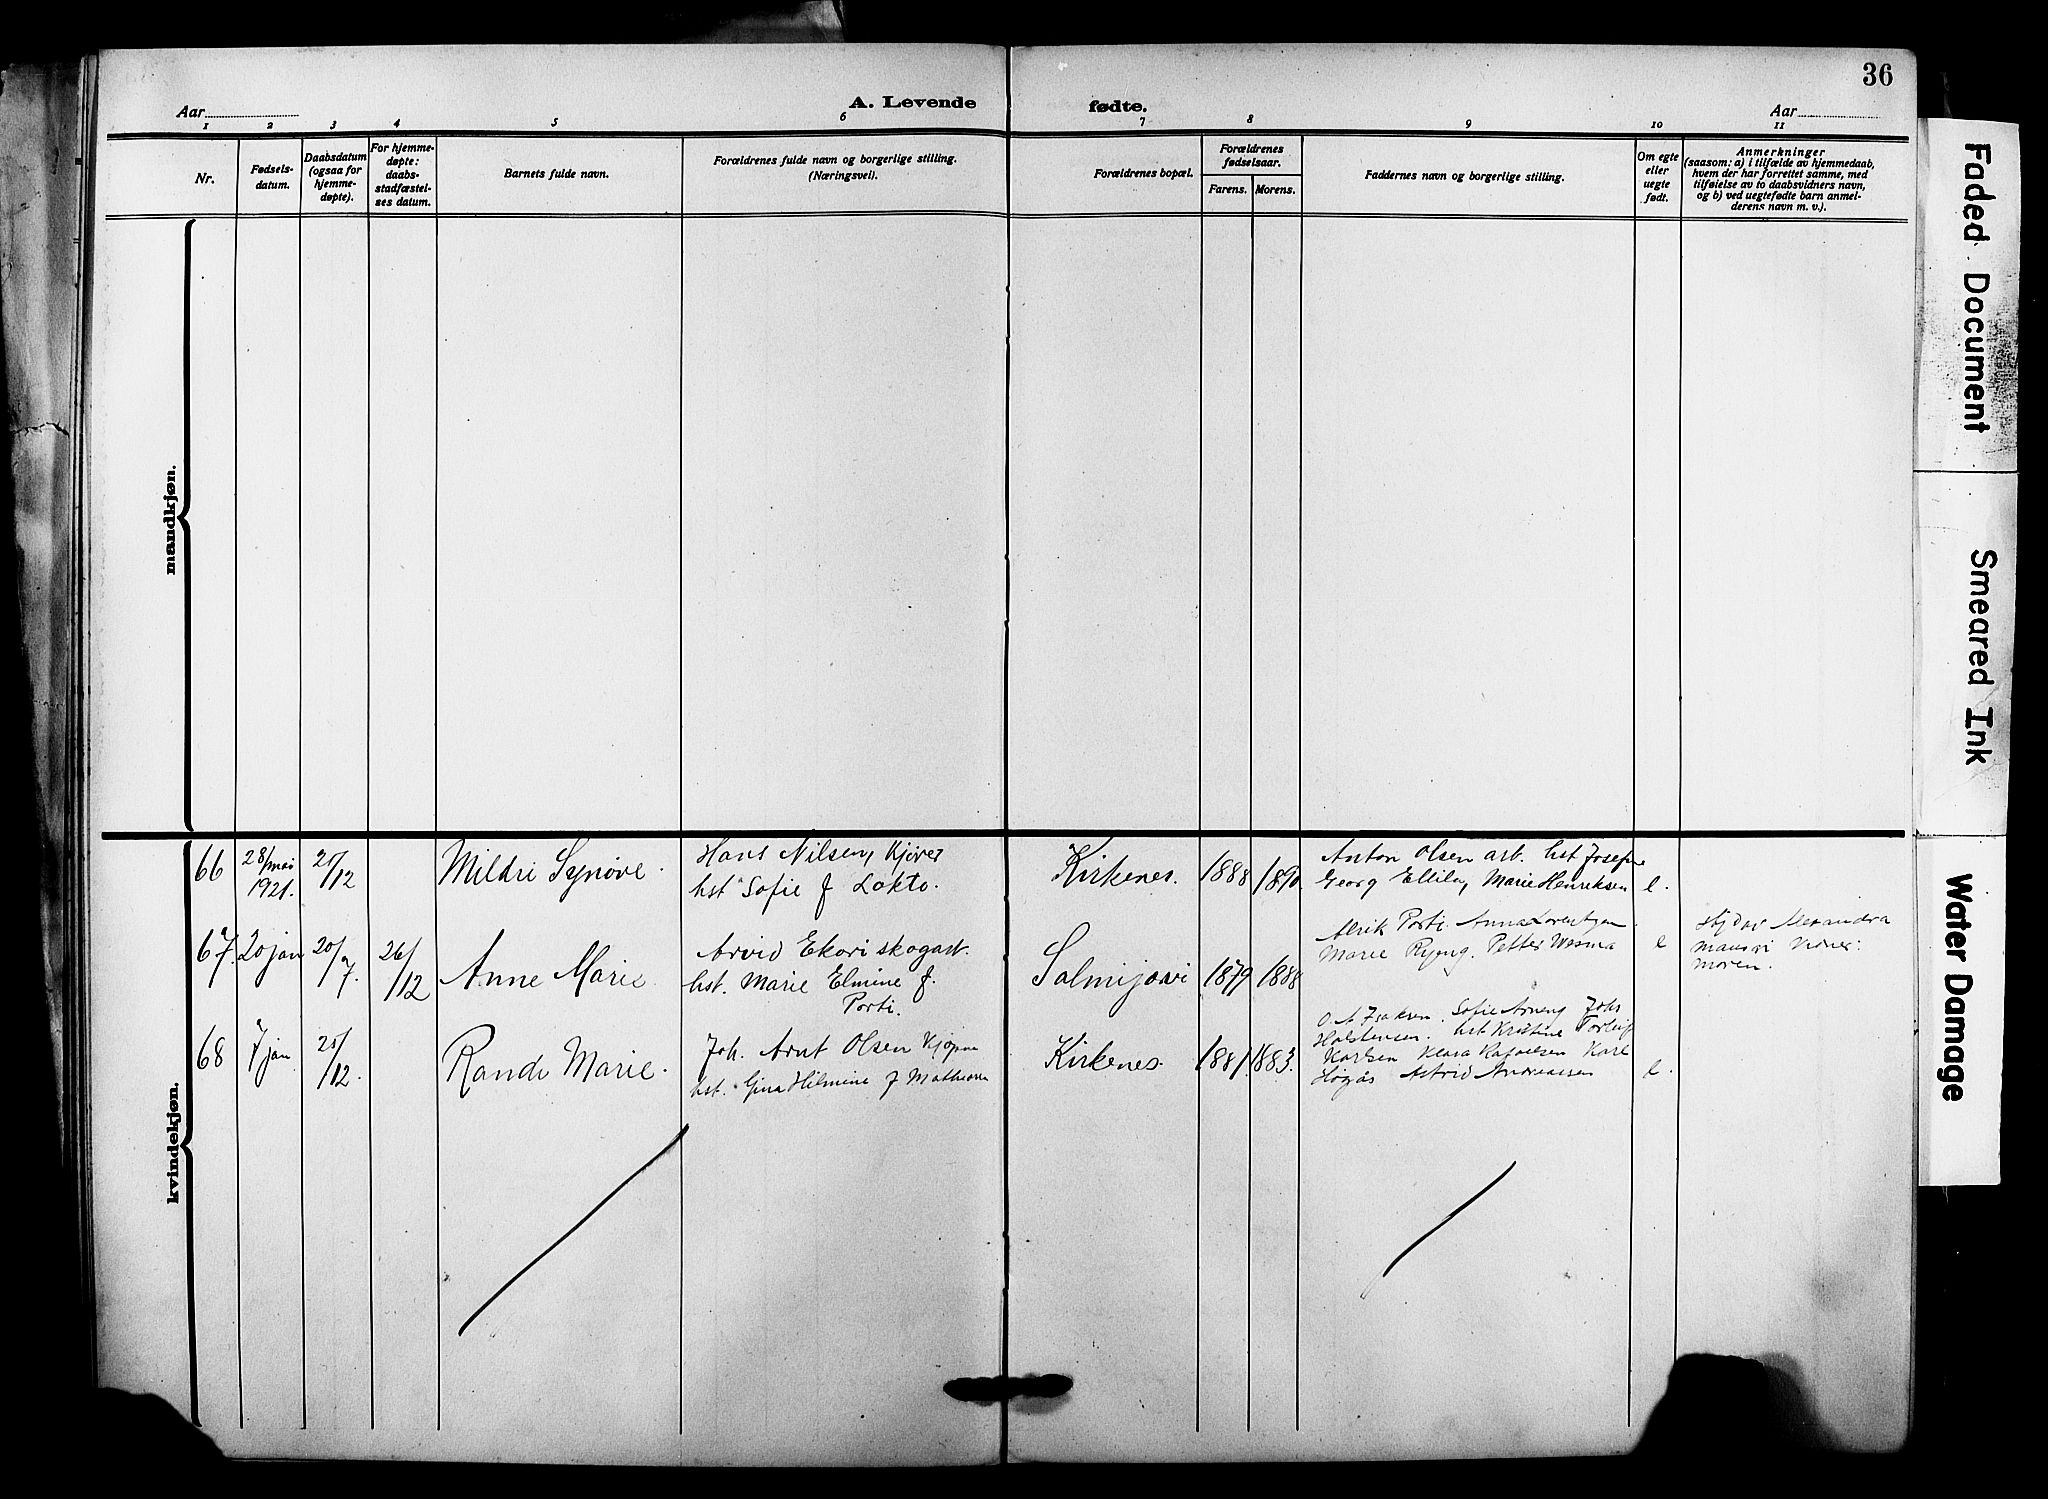 36
A. Levende fødte.
Aar
Aar
1 2 3 4 5 6 7 8 9 10 11
Nr.
Fødsels-
datum.
Daabsdatum
(ogsaa for
hjemme-
døpte).
For hjemme-
døpte:
daabs-
stadfæstel-
ses datum.
Barnets fulde navn.
Forældrenes fulde navn og borgerlige stilling.
(Næringsvei).
Forældrenes bopæl.
Forældrenes
fødselsaar.
Farens. Morens.
Faddernes navn og borgerlige stilling.
Om egte
eller
uegte
født.
Anmerkninger
(saasom: a) i tilfælde av hjemmedaab,
hvem der har forrettet samme, med
tilføielse av to daabsvidners navn,
og b) ved uegtefødte barn anmel-
derens navn m. v.).
mandkjøn.
kvindekjøn.
66
28/mai
1921.
/12
Mildri Synøve.
Hans Nilsen, Kjører
hst Sofie f Løkto.
Kirkenes.
1888
Anton Olsen arb. hst Josefne
Georg Ellila, Marie Henriksen
e.
67.
20 jan
20/7.
26/12
Anne Marie
Arvid Ekori skogarb.
hst. Marie Elmine f.
Porti.
Salmijarvi
1879
1888
Alrik Porti. Anna Lorentzen
Marie Petter
e
Hj dav Alexandra
moren.
68
7 jan
/12.
Randi Marie.
Joh. Arnt Olsen
hst. Gina Hilmine f
Kirkenes.
1881
1883.
O. A. Isaksen. Sofie Johs
Holstensen. hst Kristine Torleif
Karlsen Klara Rafaelsen Karl
Høgås Astrid Andreassen
e.
Faded Document
Smeared Ink
Water Damage